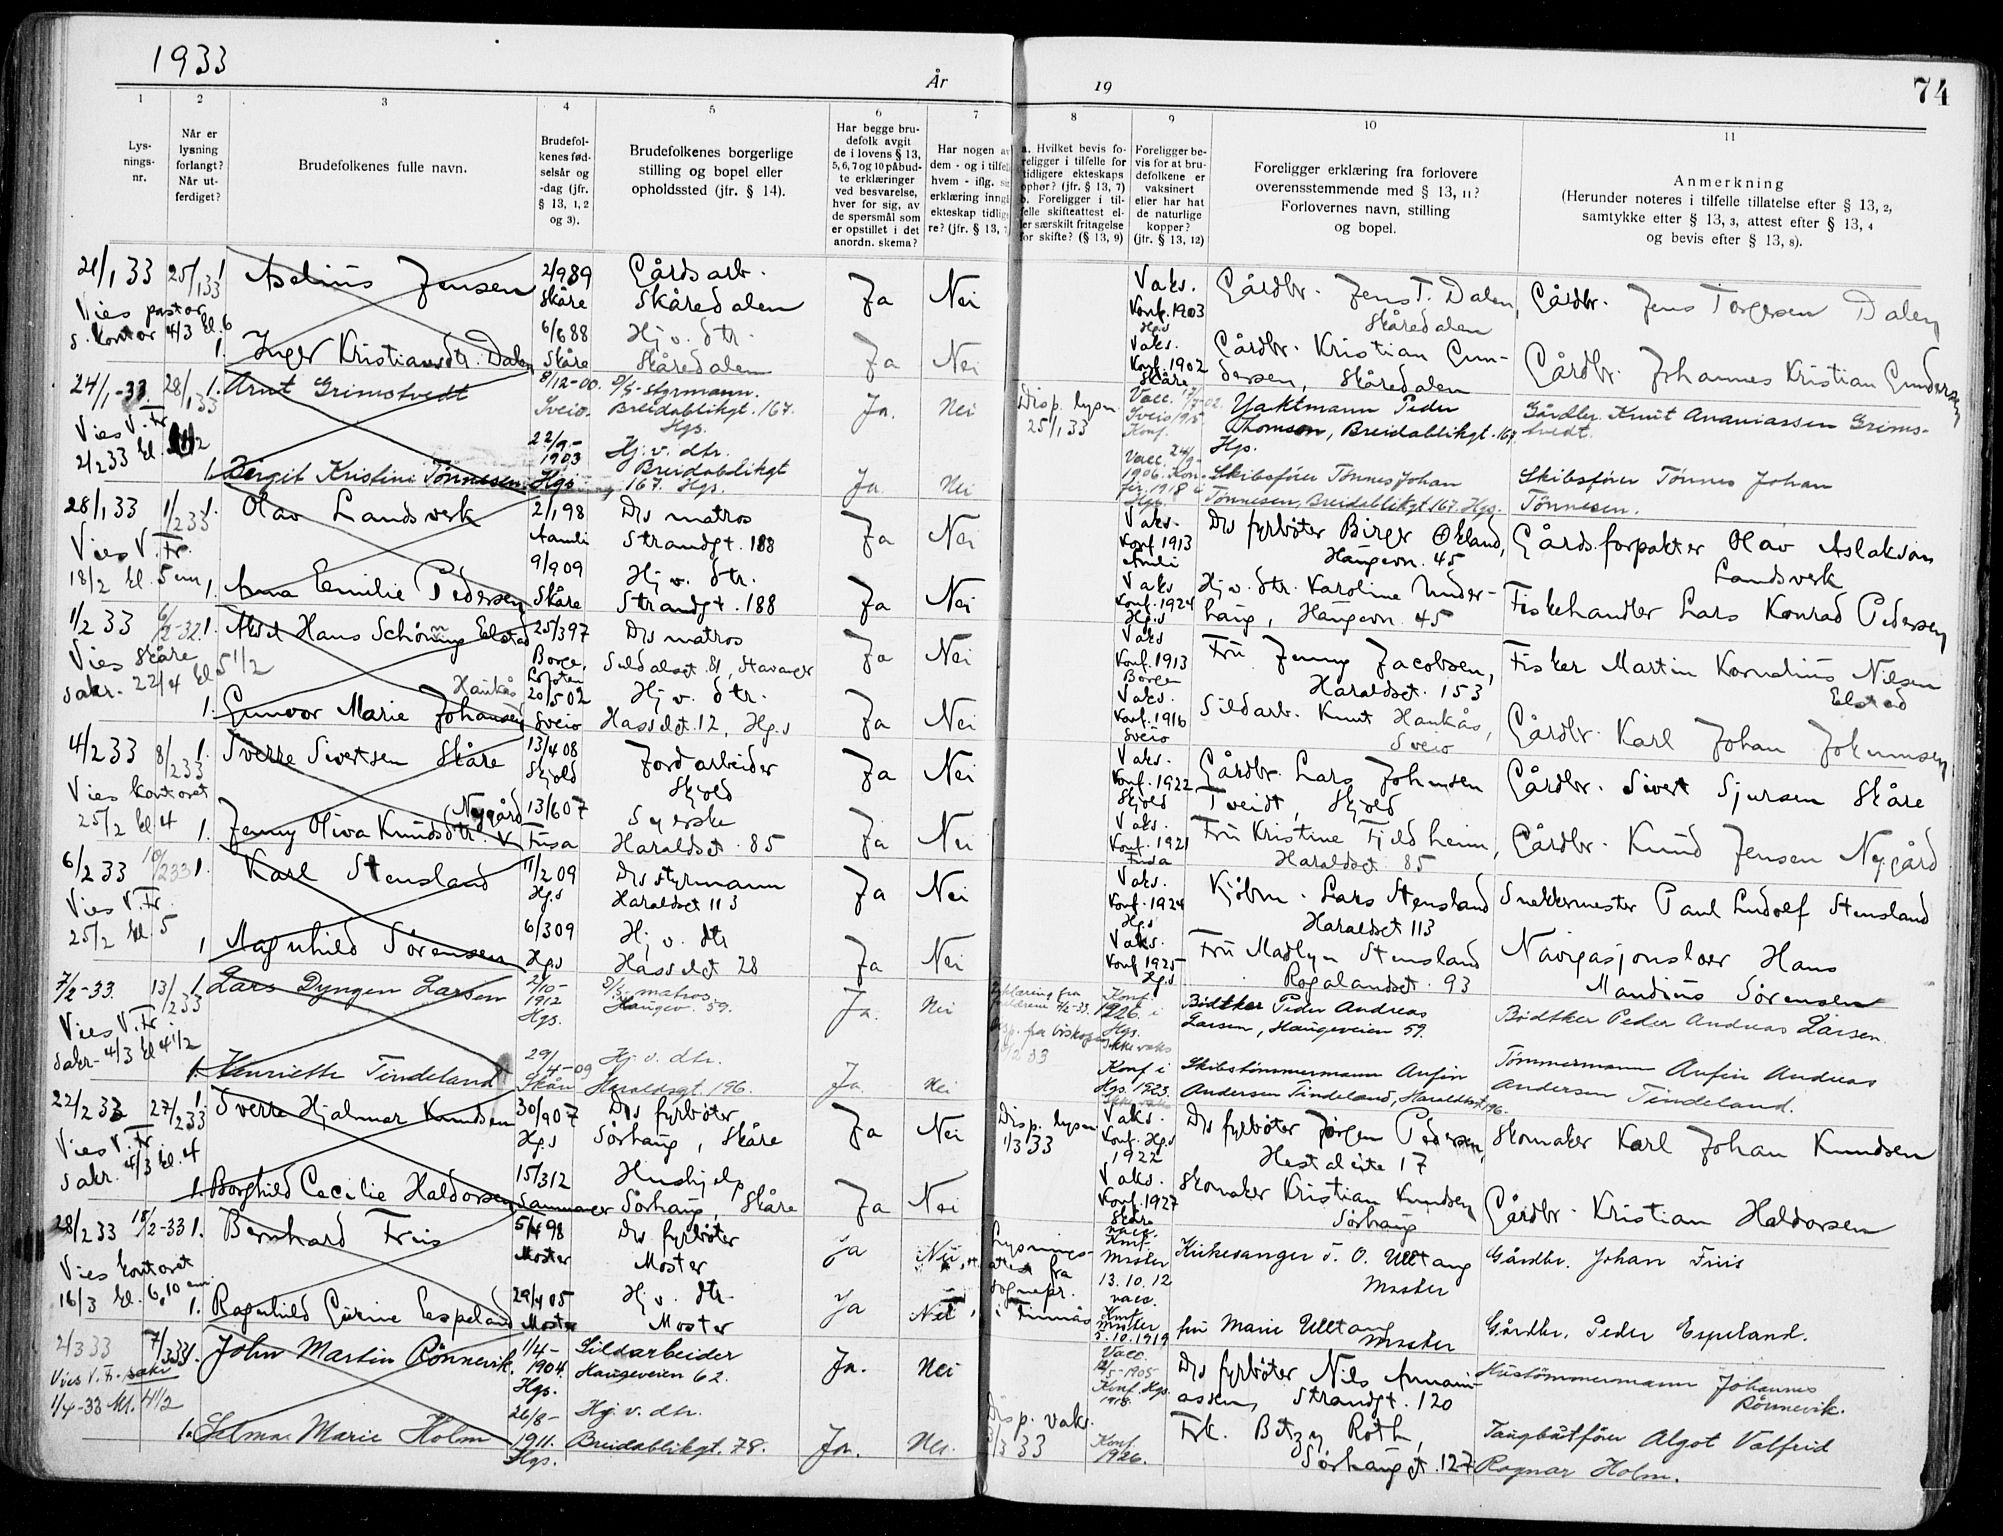 1933
År
19
74
1
2
3
4
5
6
7
8
9
10
11
Lys-
nings-
nr.
Når er
lysning
forlangt?
Når ut-
ferdiget?
Brudefolkenes fulle navn.
Brudefol-
kenes fød-
selsår og
-dag (jfr.
§ 13, 1, 2
og 3).
Brudefolkenes borgerlige
stilling og bopel eller
opholdssted (jfr. § 14).
Har begge bru-
defolk avgit
de i lovens § 13,
5, 6, 7 og 10 påbud-
te erklæringer
ved besvarelse,
hver for sig, av
de spørsmål som
er opstillet i det
anordn. skema?
Har nogen av
dem - og i tilfelle
hvem - iflg.
erklæring inngå
ekteskap tidlige-
re? (jfr. § 13,
a. Hvilket bevis fo-
religger i tilfelle for
tidligere ekteskaps
ophør? (jfr. § 13, 7)
b. Foreligger i til-
felle skifteattest el-
ler særskilt fritagelse
for skifte? (§ 13, 9)
Foreligger be-
vis for at bru-
defolkene er
vaksinert
eller har hat
de naturlige
kopper?
(jfr. § 13, 12)
Foreligger erklæring fra forlovere
overensstemmende med § 13, 11?
Forlovernes navn, stilling
og bopel.
Anmerkning
(Herunder noteres i tilfelle tillatelse efter § 13, 2,
samtykke efter § 13, 3, attest efter § 13, 4
og bevis efter § 13, 8).
21/1 33 25/1 33 1 Aselius Jensen 2/9 89 Skåre Gårdsarb. Skåredalen Ja Nei Vaks. Konf. 1903 Hgs Gårdbr. Jens T. Dalen, Skåredalen Gårdbr. Jens Torgersen Dalen
Vies pastor
s. kontor 4/3 kl. 6
1. Inger Kristiansdtr. Dalen 6/6 88 Skåre Hj. v. dtr. Skåredalen Ja Nei Vaks. Konf. 1902 Skåre Gårdbr. Kristian Gun-
dersen, Skåredalen Gårdbr. Johannes Kristian Gundersen
24/1-33. 28/1 33 1. Arnt Grimstvedt 8/12-00. Sveio. D/S-styrmann. Breidablikgt. 167. Hgs. Ja. Nei Disp. lysn. 25/1 33 Vacc. Sveio 1915 Konf. Yaktmann Peder
Thomson, Breidablikgt. 167 Hgs. Gårdbr. Knut Ananiassen Grims-
tvedt.
Vies V. Fr.
2/2 33 kl.
1. Birgit Kristine Tønnesen. 22/9-1903 Hgs Hj. v. dtr. Breidablikgt 167. Hgs. Ja. Nei Vacc. 24/9-1906. Kon-
fir. 1918 i Hgs. Skibsfører Tønnes Johan
Tønnesen, Breidablikgt 167. Hgs. Skibsfører Tønnes Johan
Tønnesen.
28/1 33 1/2 33 1. Olav Landsverk 2/1 98 Aamli Ds matros Strandgt. 188 Ja Nei Vaks. Konf. 1913 Amli Ds fyrbøter Birger Økland,
Haugevn. 45 Gårdsforpakter Olav Aslaksen
Landsverk
Vies V. Fr.
18/2 kl. 5 em
1. Anna Emilie Pedersen 9/9 09 Skåre Hj. v. dtr. Strandgt. 188 Ja Nei Vaks Konf. 1924 Hg.s Hj. v. dtr. Karoline Under-
haug, Haugevn. 45 Fiskehandler Lars Konrad Pedersen
1/2 33 6/2-32. 1. Aksel Hans Schønning Elstad 25/3 97 Borge, Lofoten Ds matros , Stavanger Ja Nei Vaks Konf. 1913 Borge Fru Jenny Jacobsen,
Haraldsgt. 153 Fisker Martin Kornelius Nilsen
Elstad
Vies Skåre
sakr. 22/4 kl 5 1/2
Haukås
1. Gunvor Marie Johansen 20/5 02 Sveio Hj. v. dtr. Hasselgt. 12, Hg.s Ja Nei Vaks. Konf. 1916 Sveio Sildarb. Knut Haukås,
Sveio Gårdbr. Karl Johan Johannsen
4/2 33 8/2 33 1. Sverre Sivertsen Skåre 13/4 08 Skjold Jordarbeider Skjold Ja Nei Vaks. Konf. 1922 Skjold Gårdbr. Lars Johansen
Tveidt, Skjold Gårdbr. Sivert Sjursen Skåre
Vies kontoret
25/2 kl 4
(Nygård
1. Jenny Oliva Knudsdtr. 13/6 07 Fusa Syerske Haraldsgt. 85 Ja Nei Vaks. Konf. 1921 Fusa Fru Kristine Fjeldheim,
Haraldsgt. 85 Gårdbr. Knud Jensen Nygård
6/2 33 10/2 33 1. Karl Stensland 11/2 09 Hg.s Ds styrmann Haraldsgt 113 Ja Nei Vaks. Konf. 1924 Hg.s Kjøbm. Lars Stensland
Haraldsgt 113 Snekkermester Paul Ludolf Stensland
Vies V. Fr.
25/2 kl. 5
1 Magnhild Sørensen 6/3 09 Hg.s Hj. v. dtr Hasselgt 28 Ja Nei Vaks. Konf 1925 Hg.s Fru Madlyn Stensland
Rogalandsgt. 93 Navigasjonslær Hans
Maudius Sørensen
7/2-33. 13/2 33 1. Lars Dyngen Larsen 2/10-1912 Hgs. D/S-matros Haugev. 59. Ja. Nei Disp. fra biskopen Konf. 1926. i Hgs. Ikke vaks Bødtker Peder Andreas
Larsen, Haugeveien 59. Bødtker Peder Andreas Larsen.
Vies V. Fr. i
sakr- 4/3 kl 4 1/2
1. Henriette Tindeland 29/4-09 Skåre Hj. v. dtr. Haraldsgt. 196. Ja Nei Konf i Hgs. 1923. Skibstømmermann Anfin
Andersen Tindeland, Haraldsgt 196. Tømmermann Anfin Andreas
Andersen Tindeland.
22/2 33 27/2 33 1. Sverre Hjalmar Knudsen 30/9 07 Hg.s Ds fyrbøter Sørhaug, Skåre Ja Nei Disp. lysn. 1/3 33 Vaks. Konf. Hg.s 1922 Ds fyrbøter Jørgen Pedersen,
Hestaleite 17 Skomaker Karl Johan Knudsen
Vies V. Fr
sakr. 4/3 kl. 4
1. Borghild Cecilie Haldorsen 15/3 12 Samnanger Hushjelp Sørhaug, Skåre Ja Nei Vaks. Konf. 1927 Skåre Skomaker Kristian Knudsen
Sørhaug Gårdbr. Kristian Haldorsen
28/2 33 18/2-33 1. Bernhard Friis 5/4 98 Moster Ds fyrbøter Moster Ja Nei Lysnings-
attest fra
sognepr.
i Finnås vacc. Konf. Moster 13.10.12 Kirkesanger T. O. Ulltang
Moster Gårdbr. Johan Friis
Vies kontoret
16/3 kl. 6,10 em.
1. Ragnhild Gurine Espeland 29/4 05 Moster Hj. v. dtr. Moster Ja Nei vacc. Konf Moster 5.10.1919 fru Marie Ulltang
Moster Gårdbr. Peder Espeland.
2/3 33 7/3 33 1. John Martin Rønnevik. 1/4-1904. Hgs. Sildarbeider Haugeveien 62. Ja. Nei Vacc. 12/5-1905 Konf. Hgs. 1918. Ds fyrbøter Nils Annani-
assen, Strandgt. 120 Hustømmermann Johannes
Rønnevik.
Vies V. Fr. sakr
1/4-33 kl. 4 1/2
1. Selma Marie Holm 26/8-1911. Hgs. Hj. v. dtr. Breidablikgt. 78. Ja. Nei. Disp. vaks. 3/3 33 Konf. 1926. Frk. Betzy Roth,
Sørhauggt. 127 Taugbåtfører Algot Valfrid
Ragnar Holm.